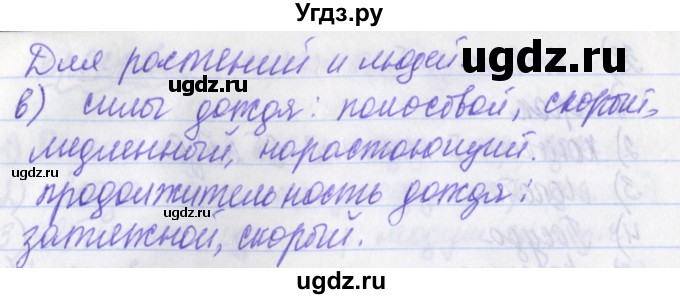 Угдз.ру
Для растений и людей
в) силы дождя: полосовой, скорый,
медленный, нарастающий.
продолжительность дождя:
затяжной, скорый.
©ugdz.ru
©ugdz.ru
©ugdz.ru
ugdz.ru